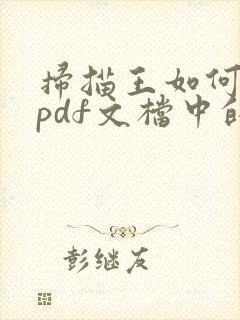 掃描王如何
pdf文檔中的
彭继友